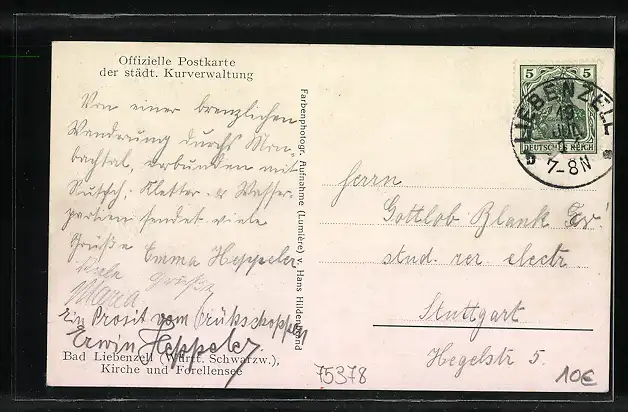 Offizielle Postkarte
der städt. Kurverwaltung
Von einer brenzlichen
Wanderung durchs Mon-
bachtal, verbunden mit
Rutsch-, Kletter- & Wasser-
partien sendet viele
Grüße Emma Heppeler
Viele Grüße
Maria
Ein Prosit vom Frühschoppen
Erwin Heppeler
Bad Liebenzell (Württ. Schwarzw.),
Kirche und Forellensee
Farbenphotogr. Aufnahme (Lumière) v. Hans Hildenbrand
5 5
DEUTSCHES REICH
LIEBENZELL
19
JUL
7-8N
Herrn
Gottlob Blank
stud. rer electr
Stuttgart
Hegelstr 5.
75378
10€